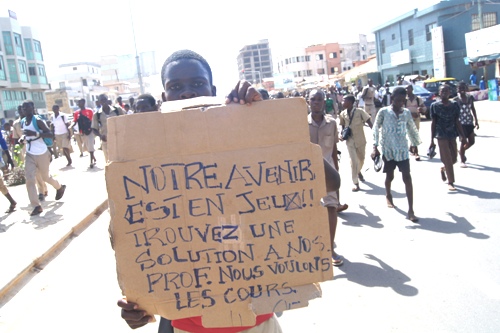 NOTRE AVENIR
EST EN JEUX!!
TROUVEZ UNE
SOLUTION A NOS
PROF. NOUS VOULONS
LES COURS.